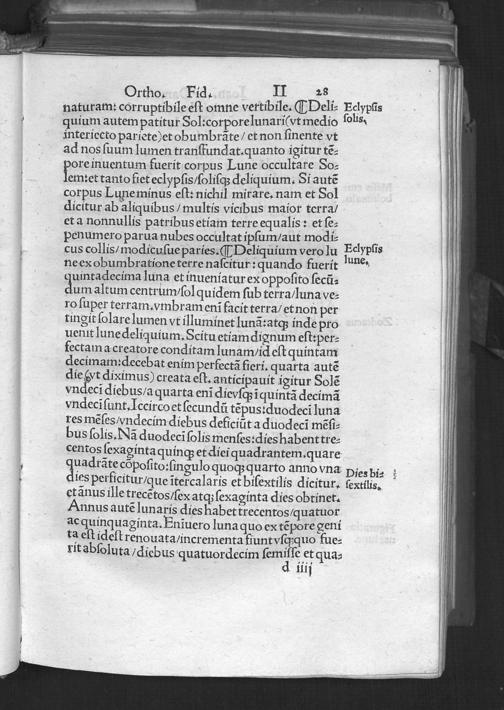 Ortho. Fid. II 28
naturam: corruptibile est omne vertibile. ¶ Deli⸗ Eclypsis
quium autem patitur Sol: corpore lunari (vt medio solis.
interiecto pariete) et obumbrãte / et non sinente vt
ad nos suum lumen transfundat. quanto igitur tẽ⸗
pore inuentum fuerit corpus Lune occultare So⸗
lem: et tanto fiet eclypsis / solisqꝫ deliquium. Si autẽ
corpus Lune minus est: nichil mirare. nam et Sol
dicitur ab aliquibus / multis vicibus maior terra /
et a nonnullis patribus etiam terre equalis: et se⸗
penumero parua nubes occultat ipsum / aut modi⸗
cus collis / modicusue paries. ¶ Deliquium vero lu Eclypsis
ne ex obumbratione terre nascitur: quando fuerit lune.
quintadecima luna et inueniatur ex opposito secũ⸗
dum altum centrum / sol quidem sub terra / luna ve⸗
ro super terram. vmbram eni͂ facit terra / et non per
tingit solare lumen vt illuminet lunã: atqꝫ inde pro
uenit lune deliquium. Scitu etiam dignum est: per⸗
fectam a creatore conditam lunam / id est quintam
decimam: decebat enim perfectã fieri. quarta autẽ
die (vt diximus) creata est. anticipauit igitur Solẽ
vndeci͂ diebus / a quarta eni͂ die vsqꝫ i͂ quintã decimã
vndeci͂ sunt. Iccirco et secundũ tẽpus: duodeci͂ luna
res mẽses / vndecim diebus deficiũt a duodeci͂ mẽsi⸗
bus solis. Nã duodeci͂ solis menses: dies habent tre⸗
centos sexaginta quinqꝫ et diei quadrantem. quare
quadrãte cõposito: singulo quoqꝫ quarto anno vna Dies bi⸗
dies perficitur / que i͂tercalaris et bisextilis dicitur. sextilis.
et ãnus ille trecẽtos / sex atqꝫ sexaginta dies obtinet.
Annus autẽ lunaris dies habet trecentos / quatuor
ac quinquaginta. Eni͂uero luna quo ex tẽpore geni
ta est id est renouata / incrementa fiunt vsqꝫ quo fue⸗
rit absoluta / diebus quatuordecim semisse et qua⸗
d iiij